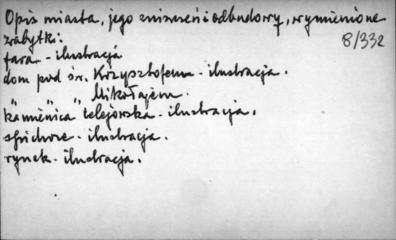 Opis miasta, jego zniszczeń i odbudowy, wymienione
zabytki:
8/332
fara - ilustracja
dom pod św. Krzysztofem - ilustracja.
" " " Mikołajem
kamienica celejowska - ilustracja.
spichrze - ilustracja.
rynek - ilustracja.